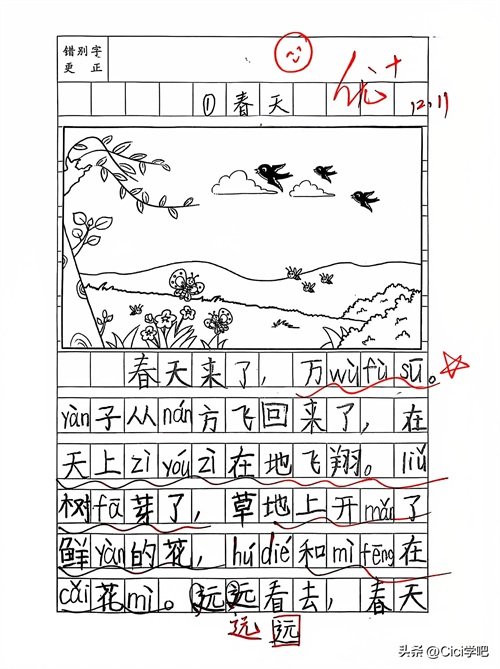 错别字
更正
优+
①春天
12.11
春天来了，万wù fù sū。
yàn子从nán方飞回来了，在
天上zì yóu zì在地飞翔。liǔ
树fā芽了，草地上开mǎn了
鲜yàn的花，hú dié和mì fēng在
cǎi花mì。远远看去，春天
远 远
头条 @Cici学吧